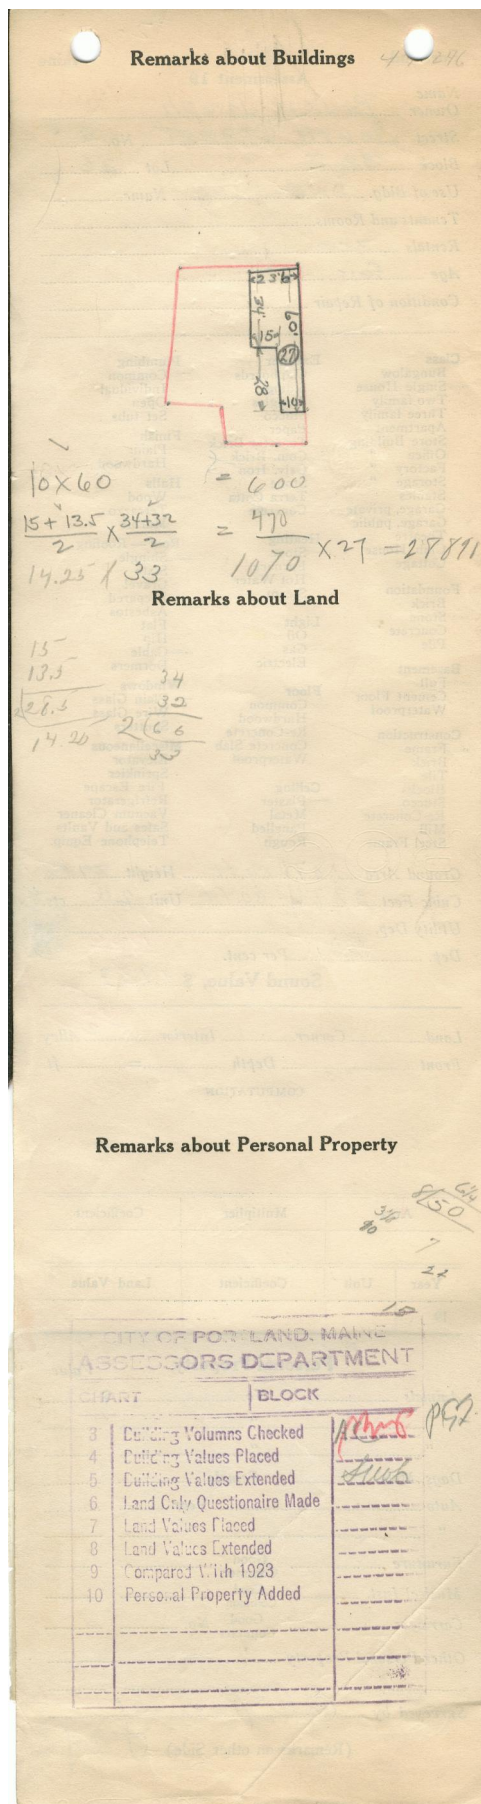 Remarks about Buildings
23½
34'
60'
15
27
28
10
10 x 60 = 600
15 + 13.5 / 2 x 34+32 / 2 = 470
1070 x 27 = 28891
14.25 x 33
Remarks about Land
15
13.5
2 28.5
14.20
34
32
2 66
33
Remarks about Personal Property
8 50 6¼
7
22
15
CITY OF PORTLAND, MAINE
ASSESSORS DEPARTMENT
CHART BLOCK
3 Building Volumns Checked
4 Building Values Placed
5 Building Values Extended
6 Land Only Questionaire Made
7 Land Values Placed
8 Land Values Extended
9 Compared With 1923
10 Personal Property Added